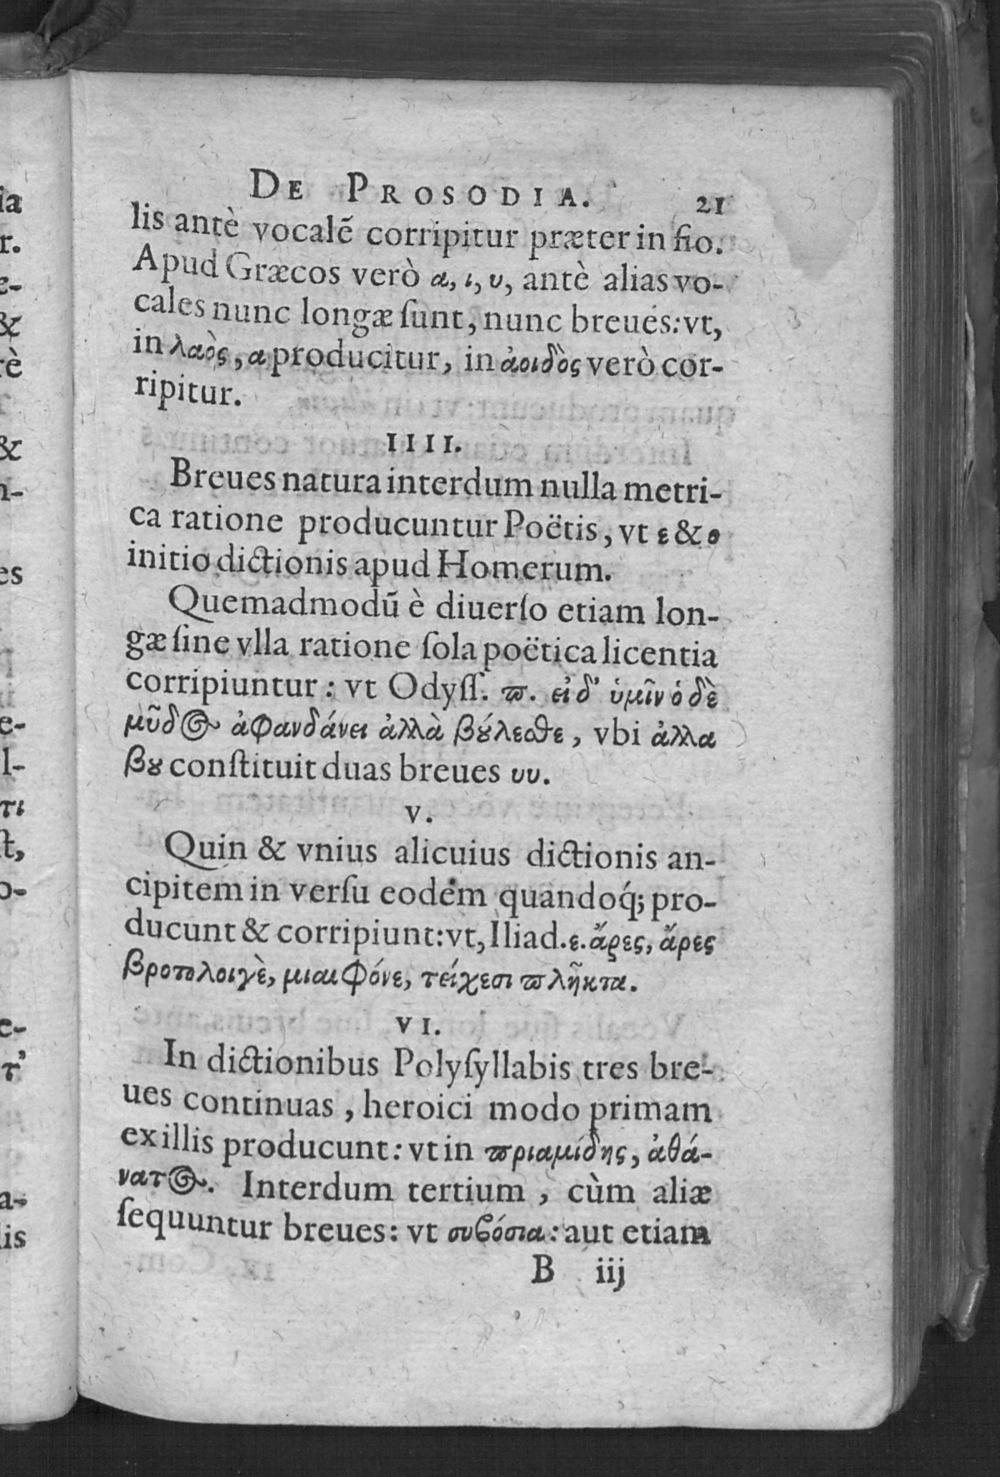 DE PROSODIA. 21
lis antè vocalẽ corripitur præter in fio.
Apud Græcos verò α, ι, υ, antè alias vo-
cales nunc longæ ſunt, nunc breues: vt,
in λαὸς, α producitur, in ἀοιδὸς verò cor-
ripitur.
IIII.
Breues natura interdum nulla metri-
ca ratione producuntur Poëtis, vt ε & ο
initio dictionis apud Homerum.
Quemadmodũ è diuerſo etiam lon-
gæ ſine vlla ratione ſola poëtica licentia
corripiuntur: vt Odyſſ. ϖ. εἰ δ' ὑμῖν ὁ δὲ
μῦδος ἀφανδάνει ἀλλὰ βȣ́λεσθε, vbi ἀλλα
βȣ conſtituit duas breues υυ.
V.
Quin & vnius alicuius dictionis an-
cipitem in verſu eodém quandoq́; pro-
ducunt & corripiunt: vt, Iliad. ε. ἄρες, ἄρες
βροτολοιγὲ, μιαιφόνε, τείχεσι ϖλῆκτα.
VI.
In dictionibus Polyſyllabis tres bre-
ues continuas, heroici modo primam
ex illis producunt: vt in ϖριαμίδης, ἀθά-
νατος. Interdum tertium, cùm aliæ
ſequuntur breues: vt συϐόσια: aut etiam
B iij